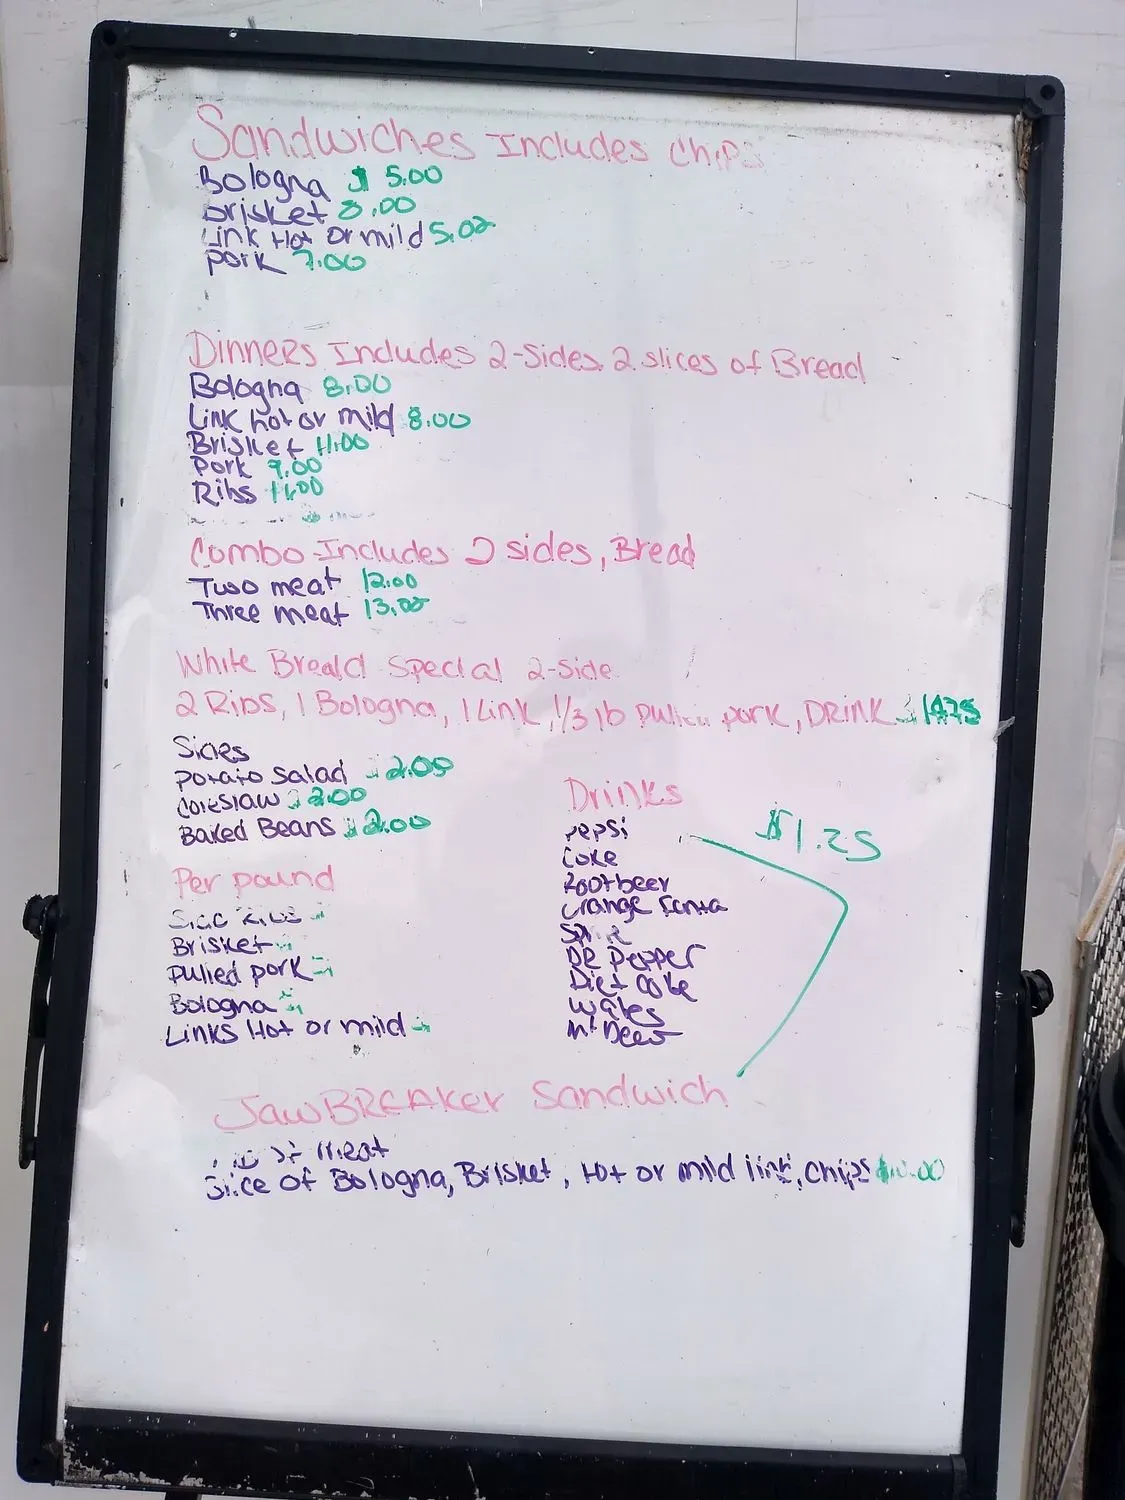 Sandwiches Includes Chips
Bologna $ 5.00
Brisket 8.00
Link Hot or mild 5.00
Pork 7.00
Dinners Includes 2-Sides, 2 slices of Bread
Bologna 8.00
Link hot or mild 8.00
Brisket 11.00
Pork 9.00
Ribs 11.00
Combo-Includes 2 sides, Bread
Two meat 12.00
Three meat 13.00
White Breald Special 2-side
2 Ribs, 1 Bologna, 1 Link, 1/3 lb pulled pork, DRINK $ 14.75
Sides
Potato Salad $ 2.00
Coleslaw $ 2.00
Baked Beans $ 2.00
Per pound
Brisket
Pulled pork
Bologna
Links Hot or mild
Drinks
Pepsi
$1.25
Coke
Rootbeer
Orange Fanta
Sprite
DR Pepper
Diet Coke
Water
Mt Dew
JawBREAKer Sandwich
of meat
Slice of Bologna, Brisket, Hot or mild link, chips $10.00